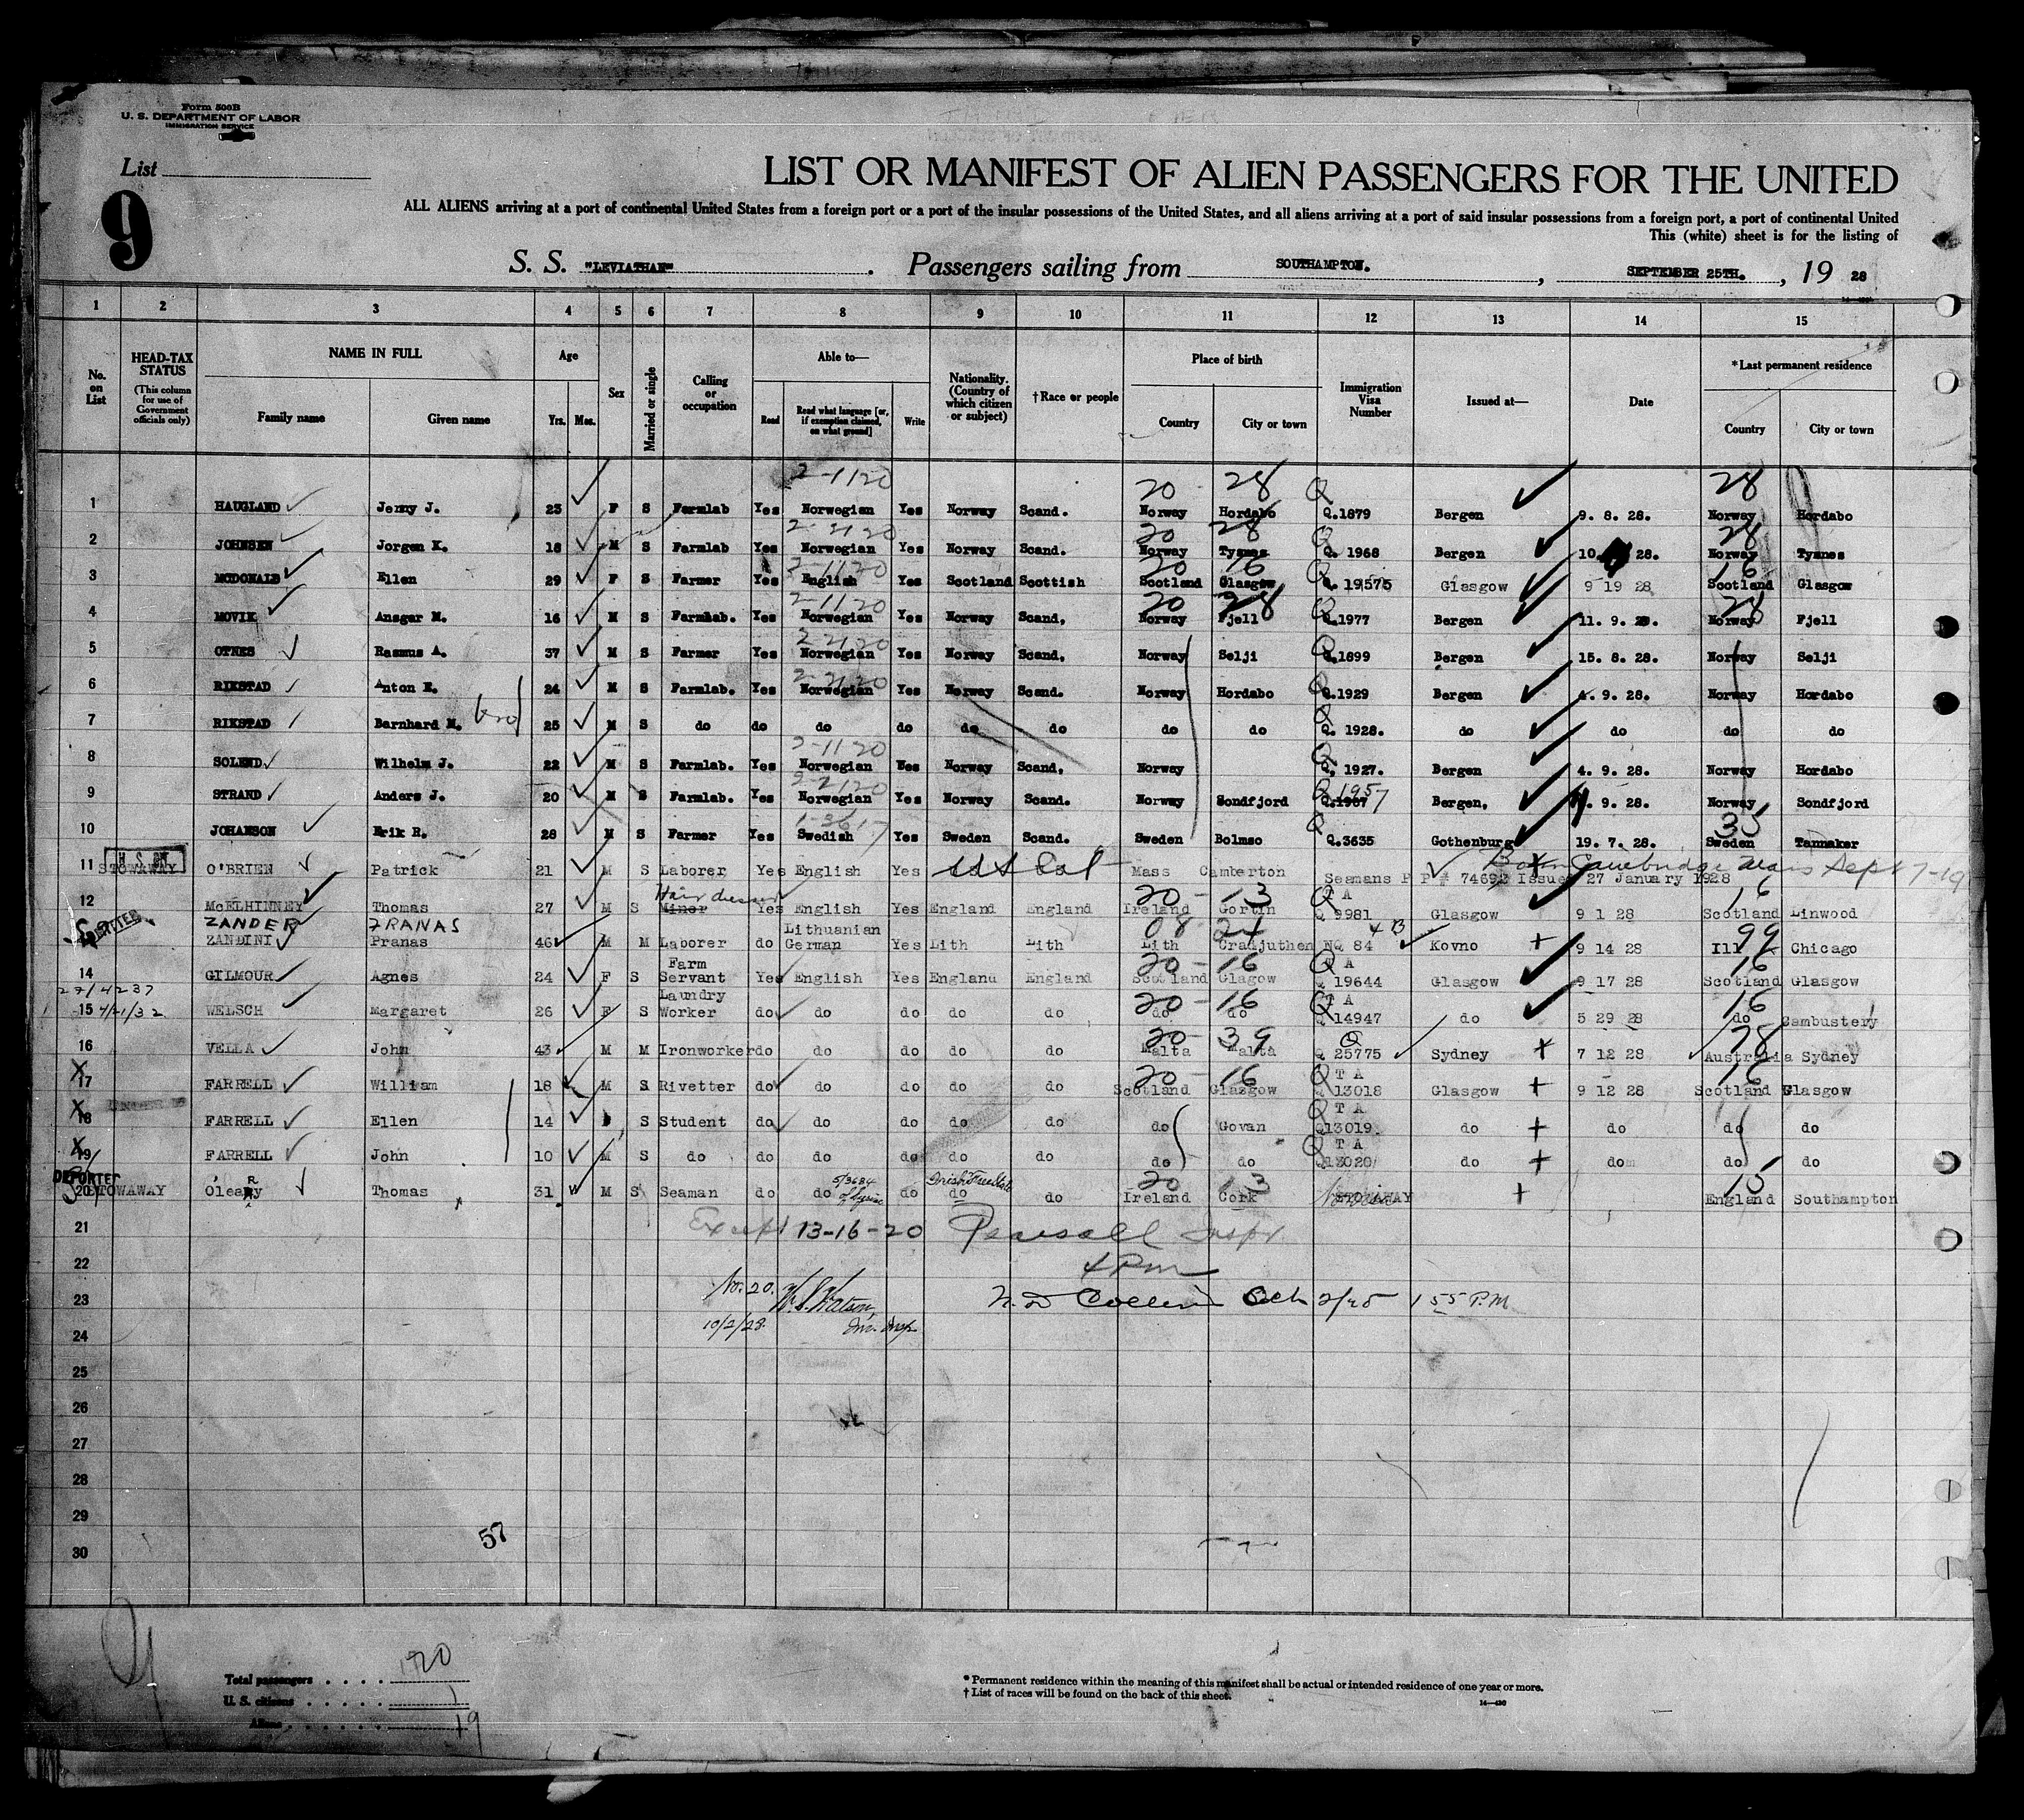 Form 500B
U. S. DEPARTMENT OF LABOR
IMMIGRATION SERVICE
List
9
LIST OR MANIFEST OF ALIEN PASSENGERS FOR THE UNITED
ALL ALIENS arriving at a port of continental United States from a foreign port or a port of the insular possessions of the United States, and all aliens arriving at a port of said insular possessions from a foreign port, a port of continental United
This (white) sheet is for the listing of
S. S. "LEVIATHAN" . Passengers sailing from SOUTHAMPTON. , SEPTEMBER 25TH. , 19 28
1 2 3 4 5 6 7 8 9 10 11 12 13 14 15
No. on List
HEAD-TAX STATUS (This column for use of Government officials only)
NAME IN FULL
Family name Given name
Age
Yrs. Mos.
Sex
Married or single
Calling or occupation
Able to—
Read Read what language [or, if exemption claimed, on what ground] Write
Nationality. (Country of which citizen or subject)
†Race or people
Place of birth
Country City or town
Immigration Visa Number
Issued at—
Date
*Last permanent residence
Country City or town
2-1120 20 28 Q 28
1 HAUGLAND Jenny J. 23 F S Farmlab Yes Norwegian Yes Norway Scand. Norway Hordabo Q.1879 Bergen 9. 8. 28. Norway Hordabo
20 28 28
2 JOHNSEN Jorgen K. 18 M S Farmlab Yes Norwegian Yes Norway Scand. Norway Tysnes Q. 1968 Bergen 10. 28. Norway Tysnes
2-1120 20 16 16
3 MCDONALD Ellen 29 F S Farmer Yes English Yes Scotland Scottish Scotland Glasgow Q. 19575 Glasgow 9 19 28 Scotland Glasgow
2-1120 20 28 28
4 MOVIK Ansgar M. 16 M S Farmlab. Yes Norwegian Yes Norway Scand, Norway Fjell Q.1977 Bergen 11. 9. 28. Norway Fjell
5 OTNES Rasmus A. 37 M S Farmer Yes Norwegian Yes Norway Scand, Norway Selji Q.1899 Bergen 15. 8. 28. Norway Selji
6 RIKSTAD Anton E. 24 M S Farmlab. Yes Norwegian Yes Norway Scand. Norway Hordabo Q.1929 Bergen 4. 9. 28. Norway Hordabo
7 RIKSTAD Barnhard M. bro 25 M S do do do do do do do do Q. 1928. do do do do
2-1120
8 SOLEND Wilhelm J. 22 M S Farmlab. Yes Norwegian Yes Norway Scand, Norway Q, 1927. Bergen 4. 9. 28. Norway Hordabo
1957
9 STRAND Anders J. 20 M S Farmlab. Yes Norwegian Yes Norway Scand. Norway Sondfjord Bergen, 9. 28. Norway Sondfjord
1-3617 35
10 JOHANSON Erik R. 28 M S Farmer Yes Swedish Yes Sweden Scand. Sweden Bolmso Q.3635 Gothenburg 19. 7. 28. Sweden Tannaker
Born Cambridge Mass Sept 7-19
11 STOWAWAY O'BRIEN Patrick 21 M S Laborer Yes English Yes Mass Camberton Seamans P P# 74692 Issued 27 January 1928
Hair dresser 20 - 13 Q T A 16
12 McELHINNEY Thomas 27 M S Miner Yes English Yes England England Ireland Gortin Q 9981 Glasgow 9 1 28 Scotland Linwood
ZANDER PRANAS Lithuanian 08 24 4 B 99
ZANDINI Pranas 46 M M Laborer do German Yes Lith Lith Lith Cradjuthen NQ 84 Kovno 9 14 28 Ill Chicago
Farm 20 - 16 Q T A 16
14 GILMOUR Agnes 24 F S Servant Yes English Yes England England Scotland Glagow Q 19644 Glasgow 9 17 28 Scotland Glasgow
27/4237 Laundry 20 - 16 Q T A 16
15 4/1/32 WELSCH Margaret 26 F S Worker do do do do do do do Q 14947 do 5 29 28 do Cambustery
20 - 39 Q 78
16 VELLA John 43 M M Ironworker do do do do do Malta Malta Q 25775 Sydney 7 12 28 Australia Sydney
X 20 - 16 Q T A 16
17 FARRELL William 18 M S Rivetter do do do do do Scotland Glazgow Q 13018 Glasgow 9 12 28 Scotland Glasgow
X Q T A
18 FARRELL Ellen 14 S Student do do do do do do Govan Q13019 do do do do
X Q T A
19 FARRELL John 10 M S do do do do do do do do Q13020 do do do do
DEPORTED Irish Free State 20 13 15
20 STOWAWAY O'leary Thomas 31 M S Seaman do do do do do Ireland Cork STOWAWAY England Southampton
21 Except 13-16-20 Pearsall Inspr
22 4 Pm
23 No. 20. W. S. Watson, N. D Collin Oct 1 55 P.M
10/2/28. Imm. Insp.
24
25
26
27
28
29
30
57
Total passengers . . . . 20
U. S. citizens . . . . . 1
Aliens . . . . . . 19
* Permanent residence within the meaning of this manifest shall be actual or intended residence of one year or more.
† List of races will be found on the back of this sheet.
14—430